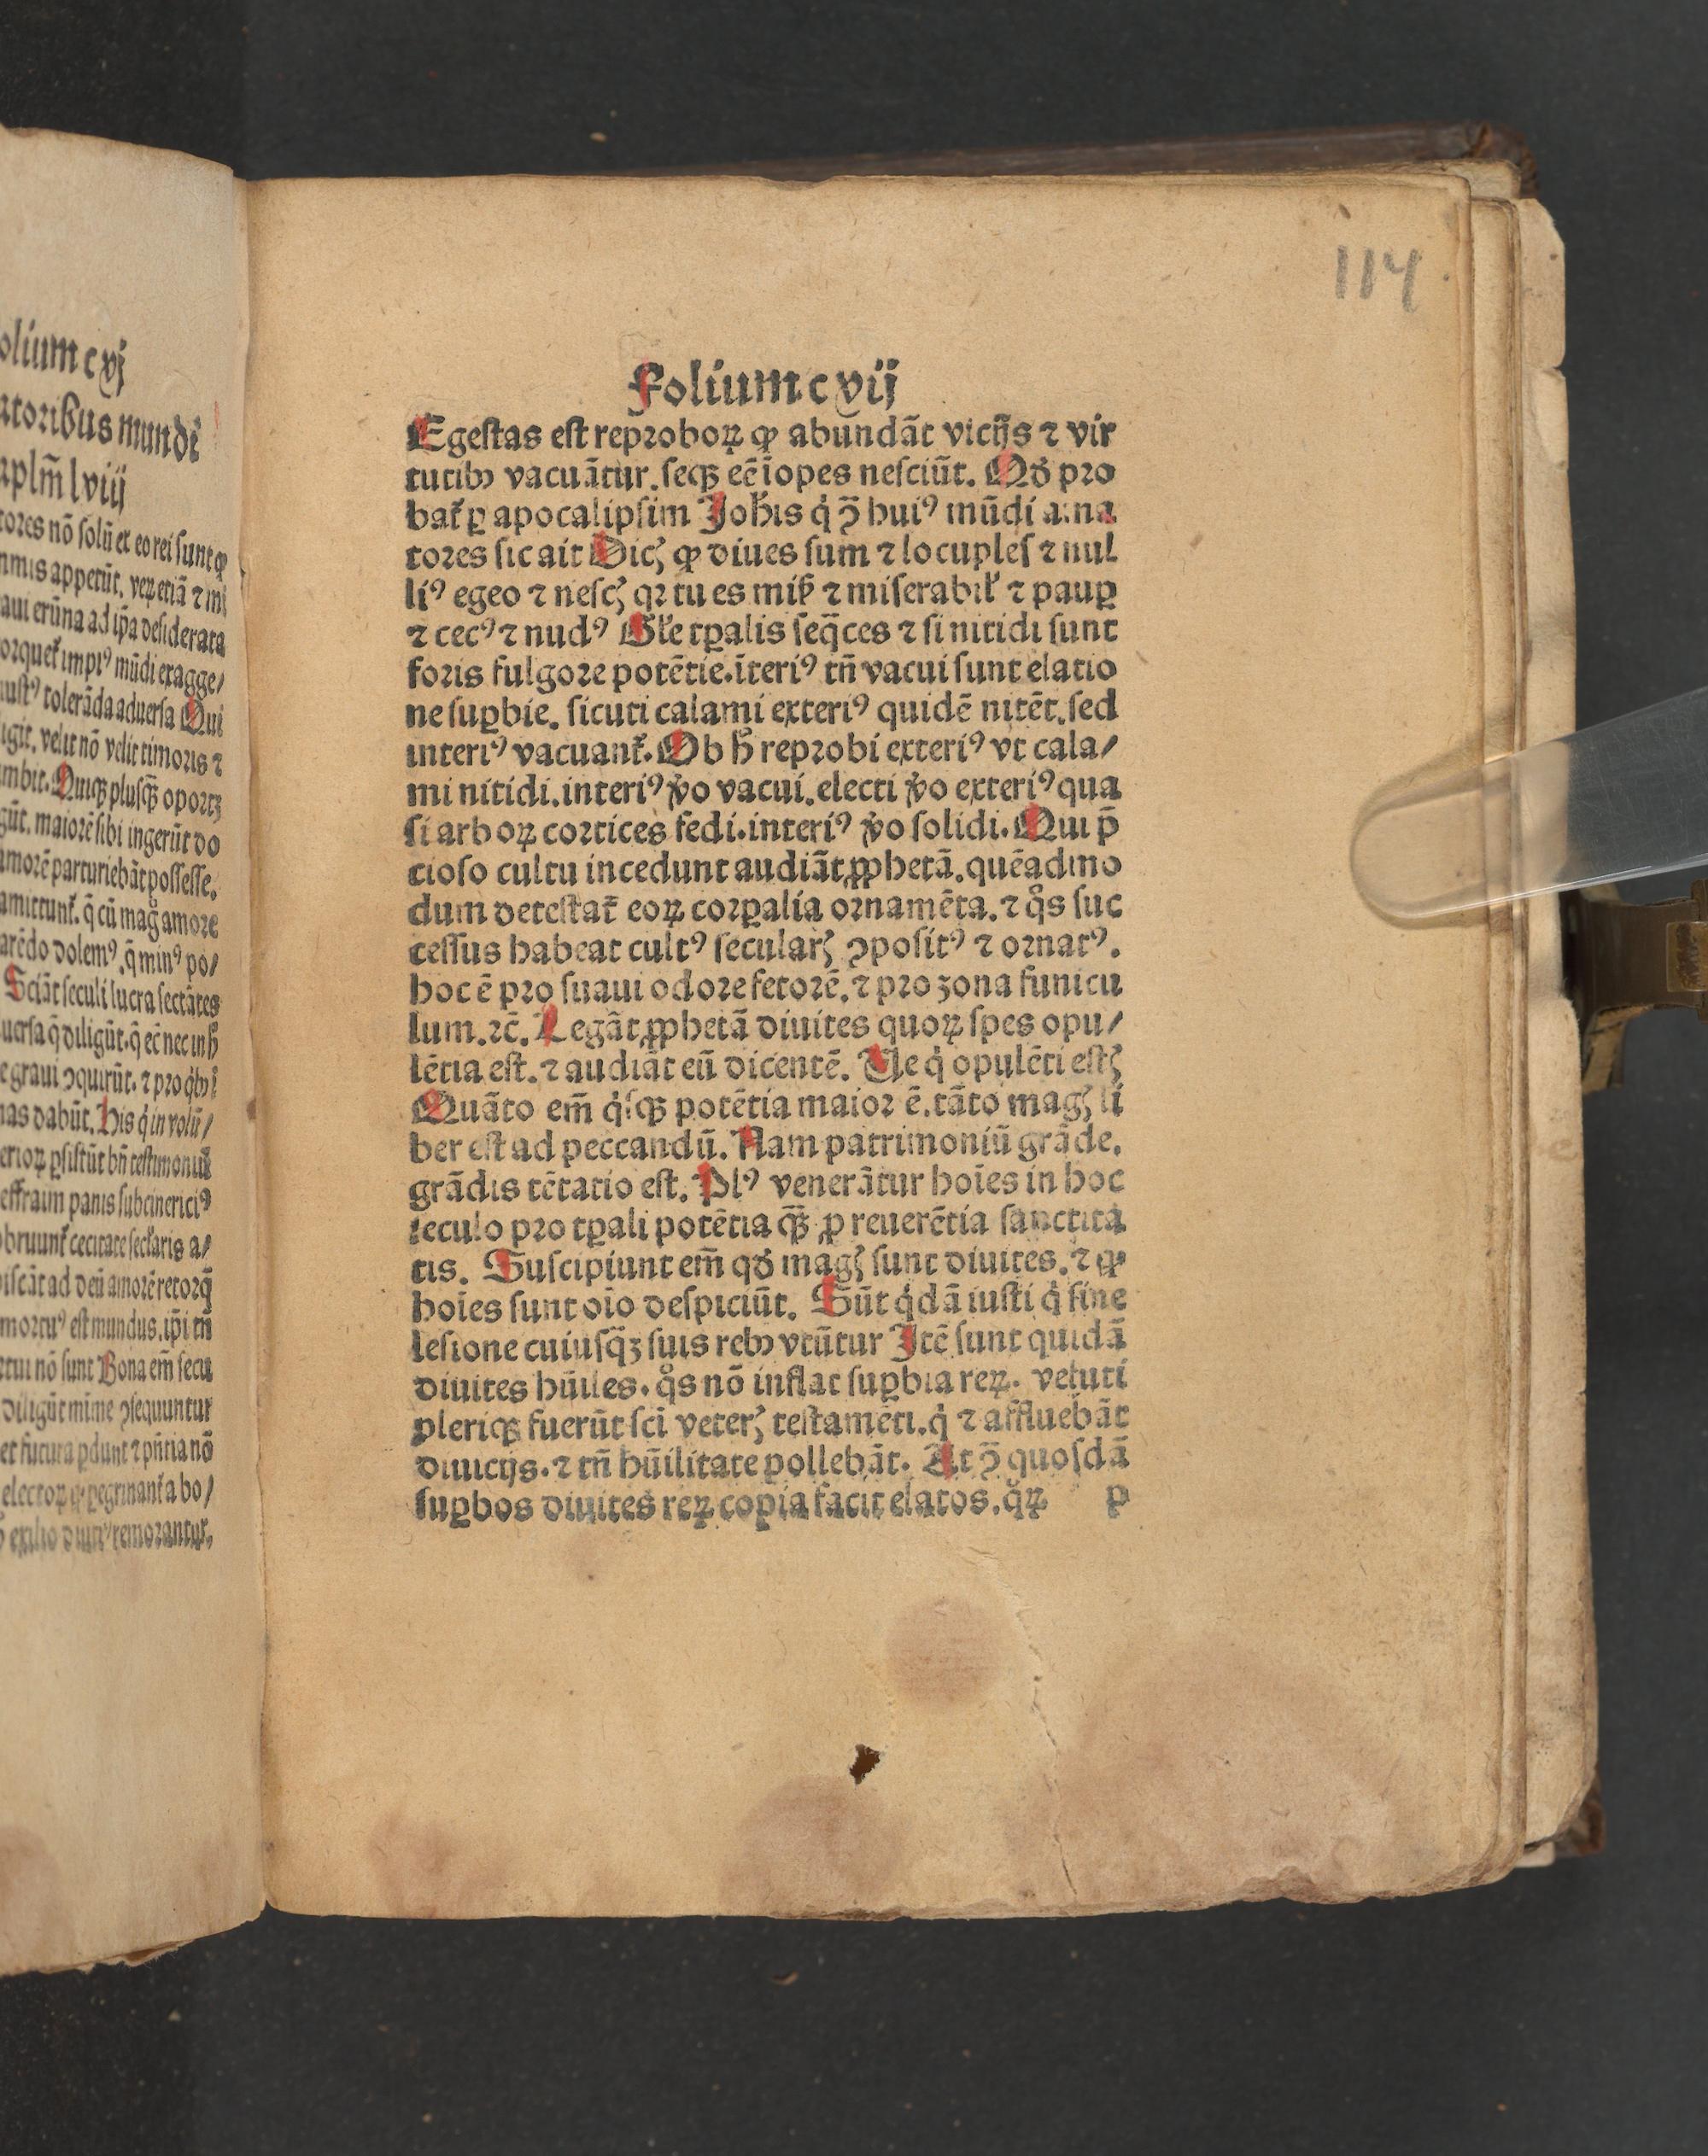 olium c vj
atoribus mundi
aplm̄ lviij
tores nō solū et eo rei sunt ꝙ
aui erūna ad ip̄a desiderata
ust⁹ tolerāda aduersa Qui
igit. velit nō velit timoris ⁊
mbit. Quiqꝫ plusq̄ꝫ oportꝫ
gūt. maiorē sibi ingerūt do
amorē parturiebāt possesse.
arēdo dolem⁹. q̄ min⁹ po/
Sciāt seculi lucra sectātes
uersa q̄ diligūt. q̄ eē nec in
nas dabūt. His q̇ in volū/
effraim panis subcinerici⁹
iscāt ad deū amorē retorq̄
mortu⁹ est mundus. ip̄i tn̄
tui nō sunt Bona em̄ secu
diligūt mīme ↄsequuntur
et futura ꝑdunt ⁊ pn̄tia nō
114
Folium c vij
Egestas est reproboꝝ ꝙ abundāt vicijs ⁊ vir
tutibꝰ vacuātur. seqꝫ eē īopes nesciūt. Qď pro
bat̄ ꝑ apocalipsim Joh̄is q̇ ꝯ̄ hui⁹ mūdi ama
tores sic ait Dicꝭ ꝙ diues sum ⁊ locuples ⁊ nul
li⁹ egeo ⁊ nescꝭ qꝛ tu es misꝭ ⁊ miserabil̓ ⁊ pauꝑ
⁊ cec⁹ ⁊ nud⁹ Gl̓e tꝑalis seq̄ces ⁊ si nitidi sunt
foris fulgore potētie. īteri⁹ tn̄ vacui sunt elatio
ne suꝑbie. sicuti calami exteri⁹ quidē nitēt. sed
interi⁹ vacuant̄. Ob h̄ reprobi exteri⁹ vt cala/
mi nitidi. interi⁹ v̊o vacui. electi v̊o exteri⁹ qua
si arboꝝ cortices fedi. interi⁹ v̊o solidi. Qui p̄
cioso cultu incedunt audiāt ꝓphetā. quēadmo
dum detestat̄ eoꝝ corꝑalia ornamēta. ⁊ q̊s suc
cessus habeat cult⁹ secularꝭ ↄposit⁹ ⁊ ornat⁹.
hoc ē pro suaui odore fetorē. ⁊ pro zona funicu
lum. ⁊c̄. Legāt ꝓphetā diuites quoꝝ spes opu/
lētia est. ⁊ audiāt eū dicentē. Ue q̇ opulēti estꝭ
Quāto em̄ q̇sqꝫ potētia maior ē. tāto magꝭ li
ber est ad peccandū. Nam patrimoniū grāde.
grādis tētatio est. Pl⁹ venerātur hoīes in hoc
seculo pro tꝑali potētia q̄ꝫ ꝓ reuerētia sanctita
tis. Suscipiunt em̄ qď magꝭ sunt diuites. ⁊ ꝙ
hoīes sunt oīo despiciūt. Sūt q̇dā iusti q̇ sine
lesione cuiusq̄ꝫ suis rebꝰ vtūtur Itē sunt quidā
diuites hūiles. q̊s nō inflat suꝑbia reꝝ. veluti
pleriqꝫ fuerūt sci veterꝭ testamēti. q̇ ⁊ affluebāt
diuicijs. ⁊ tn̄ hūilitate pollebāt. At ꝯ̄ quosdā
suꝑbos diuites reꝝ copia facit elatos. q̊ꝝ p